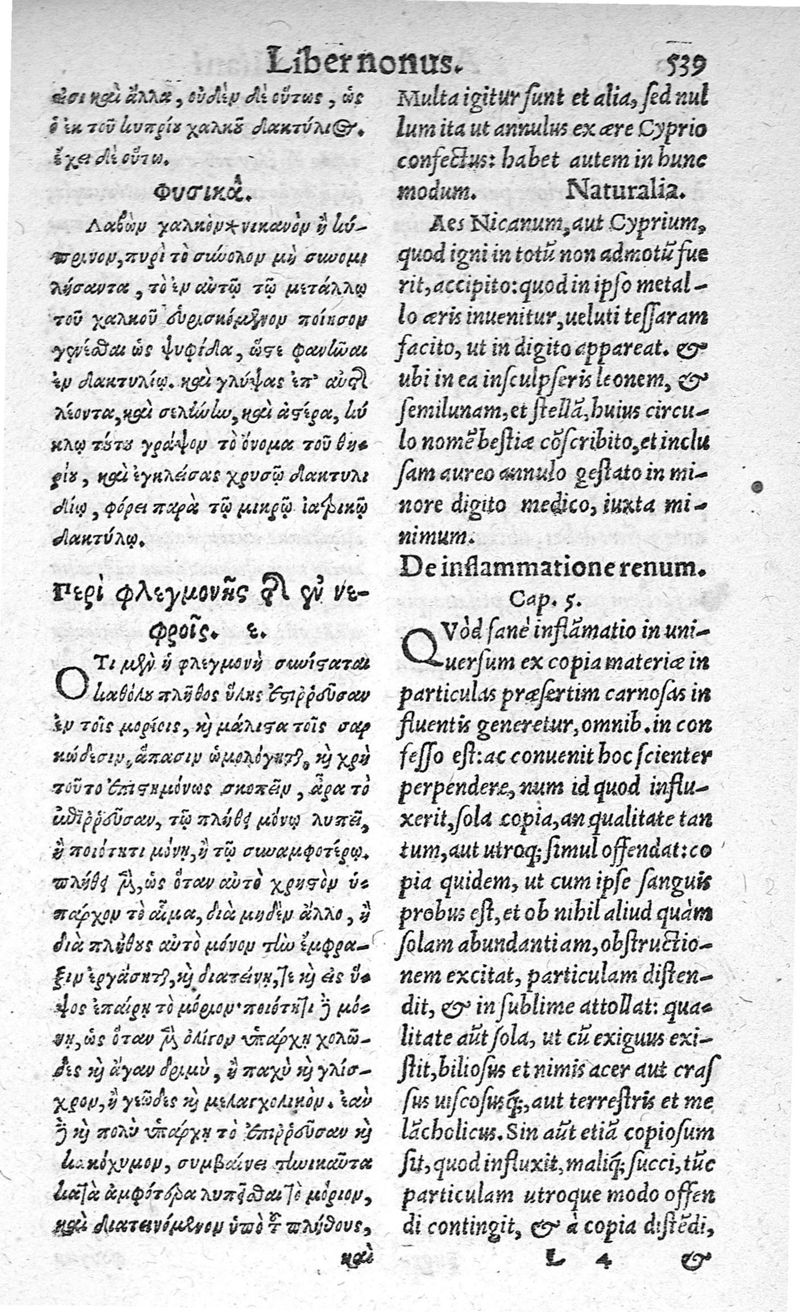 Liber nonus. 539
εἰσι καὶ ἄλλα, οὐδὲν δὲ οὕτως, ὡς
ὁ ἐκ τοῦ κυπρίου χαλκοῦ δακτύλιος.
ἔχει δὲ οὕτω.
Φυσικά.
Λαβὼν χαλκὸν * νικανὸν ἢ κύ-
πρινον, πυρὶ τὸ σύνολον μὴ συνομι
λήσαντα, τὸ ἐν αὐτῷ τῷ μετάλλῳ
τοῦ χαλκοῦ εὑρισκόμενον ποίησον
γενέσθαι ὡς ψυφίδα, ὥστε φανῆναι
ἐν δακτυλίῳ. καὶ γλύψας ἐπ' αὐτῆ
λέοντα, καὶ σελήνην, καὶ ἀστέρα, κύ
κλῳ τούτου γράψον τὸ ὄνομα τοῦ θη-
ρίου, καὶ ἐγκλείσας χρυσῷ δακτυλι
δίῳ, φόρει παρὰ τῷ μικρῷ ἰατρικῷ
δακτύλῳ.
Περὶ φλεγμονῆς τῆς ἐν νε-
φροῖς. ε.
Ὅτι μὲν ἡ φλεγμονὴ συνίσταται
καθόλου πλῆθος ὕλης ἐπιῤῥεῦσαν
ἐν τοῖς μορίοις, καὶ μάλιστα τοῖς σαρ
κώδεσιν, ἅπασιν ὡμολόγηται, καὶ χρὴ
τοῦτο ἐπιστημόνως σκοπεῖν, ἆρα τὸ
ἐπιῤῥεῦσαν, τῷ πλήθει μόνῳ λυπεῖ,
ἢ ποιότητι μόνῃ, ἢ τῷ συναμφοτέρῳ.
πλήθει μὲν, ὡς ὅταν αὐτὸ χρηστὸν ὑ-
πάρχον τὸ αἷμα, διὰ μηδὲν ἄλλο, ἢ
διὰ πλήθους αὐτὸ μόνον τὴν ἔμφρα-
ξιν ἐργάσηται, καὶ διατείνῃ, τε καὶ εἰς ὕ-
ψος ἐπαίρῃ τὸ μόριον· ποιότητι δὲ μό-
νῃ, ὡς ὅταν μὲν ὀλίγον ὑπάρχῃ χολῶ-
δες καὶ ἄγαν δριμὺ, ἢ παχὺ καὶ γλίσ-
χρον, ἢ γεῶδες καὶ μελαγχολικόν. ἐὰν
δὲ καὶ πολὺ ὑπάρχῃ τὸ ἐπιῤῥεῦσαν καὶ
κακόχυμον, συμβαίνει τηνικαῦτα
κατὰ ἀμφότερα λυπεῖσθαι τὸ μόριον,
καὶ διατεινόμενον ὑπὸ τοῦ πλήθους,
καὶ
Multa igitur sunt et alia, sed nul
lum ita ut annulus ex ære Cyprio
confectus: habet autem in hunc
modum. Naturalia.
Aes Nicanum, aut Cyprium,
quod igni in totũ non admotũ fue
rit, accipito: quod in ipso metal-
lo æris inuenitur, ueluti tessaram
facito, ut in digito appareat. &
ubi in ea insculpseris leonem, &
semilunam, et stellã, huius circu-
lo nomẽ bestiæ cõscribito, et inclu
sam aureo annulo gestato in mi-
nore digito medico, iuxta mi-
nimum.
De inflammatione renum.
Cap. 5.
QVòd sanè inflãmatio in uni-
uersum ex copia materiæ in
particulas præsertim carnosas in
fluentis generetur, omnib. in con
fesso est: ac conuenit hoc scienter
perpendere, num id quod influ-
xerit, sola copia, an qualitate tan
tum, aut utroq; simul offendat: co
pia quidem, ut cum ipse sanguis
probus est, et ob nihil aliud quàm
solam abundantiam, obstructio-
nem excitat, particulam disten-
dit, & in sublime attollat: qua-
litate aũt sola, ut cũ exiguus exi-
stit, biliosus et nimis acer aut cras
sus uiscosusq́;, aut terrestris et me
lãcholicus. Sin aũt etiã copiosum
sit, quod influxit, maliq́; succi, tũc
particulam utroque modo offen
di contingit, & à copia distẽdi,
L 4 &